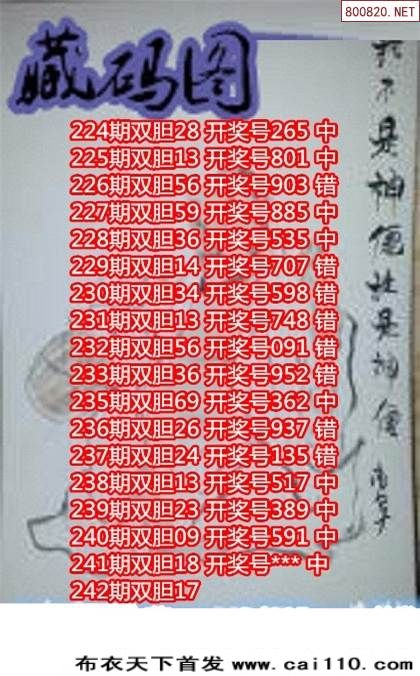 800820.NET
藏码图
224期双胆28 开奖号265 中
225期双胆13 开奖号801 中
226期双胆56 开奖号903 错
227期双胆59 开奖号885 中
228期双胆36 开奖号535 中
229期双胆14 开奖号707 错
230期双胆34 开奖号598 错
231期双胆13 开奖号748 错
232期双胆56 开奖号091 错
233期双胆36 开奖号952 错
235期双胆69 开奖号362 中
236期双胆26 开奖号937 错
237期双胆24 开奖号135 错
238期双胆13 开奖号517 中
239期双胆23 开奖号389 中
240期双胆09 开奖号591 中
241期双胆18 开奖号*** 中
242期双胆17
我不是神仙胜是神仙
布衣天下首发 www.cai110.com